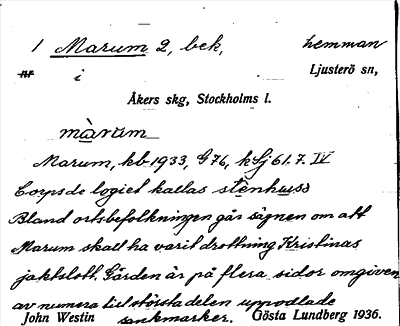 1 Marum 2, bek, hemman
nr i Ljusterö sn,
Åkers skg, Stockholms l.
màrum
Marum, kb 1933, G76, kSj 61.7. IV
Corpsde logiet kallas stenhuss
Bland ortsbefolkningen går sägnen om att
Marum skall ha varit drottning Kristinas
jaktslott. Gården är på flera sidor omgiven
av numera till största delen uppodlade
sankmarker.
John Westin Gösta Lundberg 1936.